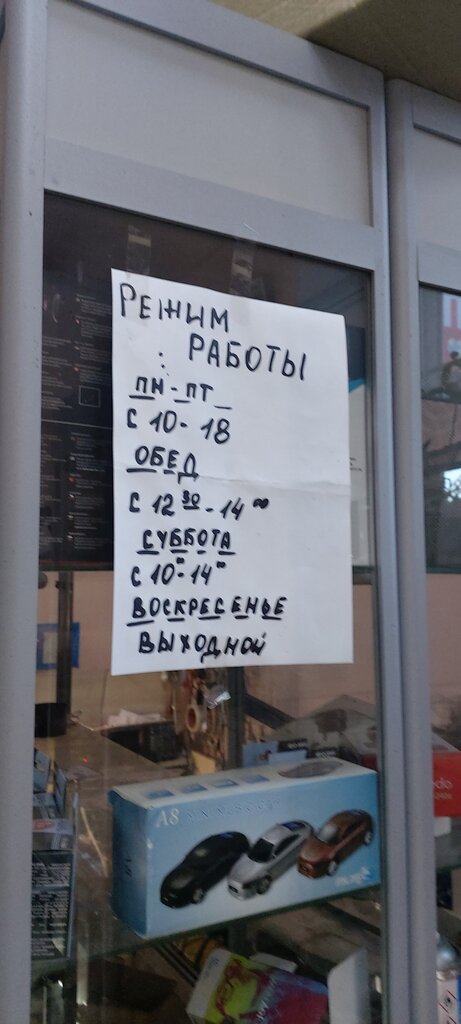 РЕЖИМ
РАБОТЫ
ПН-ПТ
С 10-18
ОБЕД
С 12 30 - 14 00
СУББОТА
С 10 00 - 14 00
ВОСКРЕСЕНЬЕ
ВЫХОДНОЙ
A8